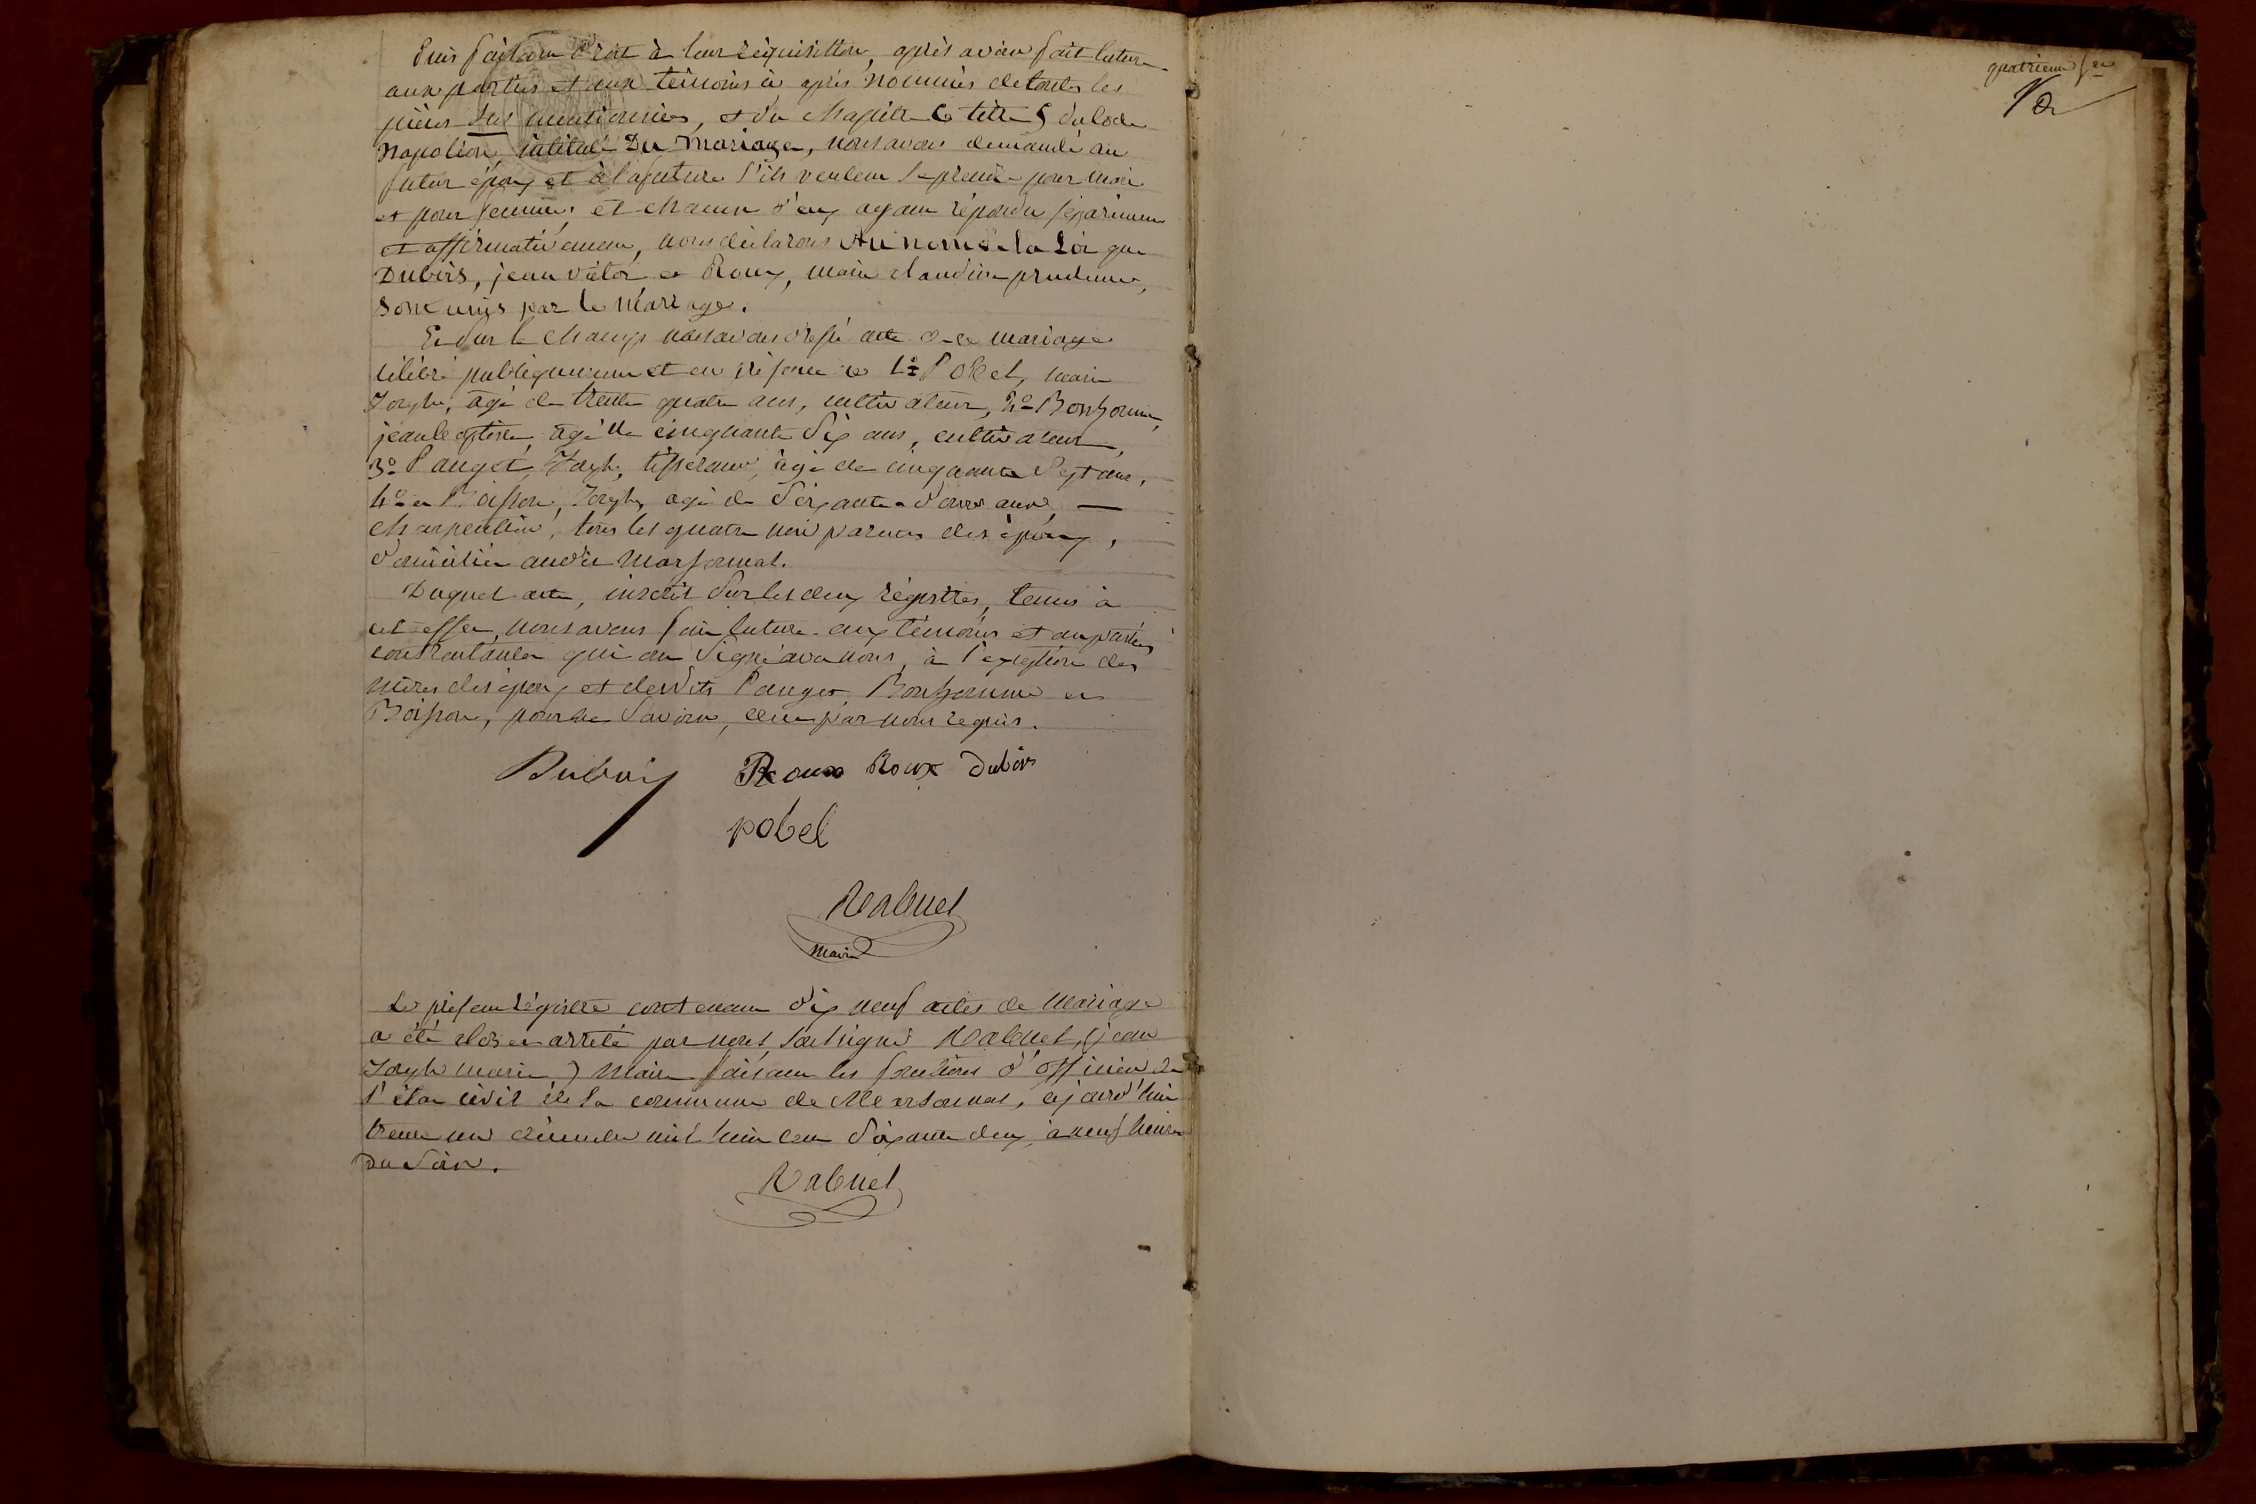 Puis faisant droit à leur réquisition, après avoir fait lecture
aux parties et aux témoins ci après nommés de toutes les
pièces sus mentionnées, et du chapitre 6 titre 5 du Code
Napoléon, intitulé Du Mariage, nous avons demandé au
futur époux et à la future s'ils veulent se prendre pour mari
et pour femme; et chacun d'eux ayant répondu séparément
et affirmativement, nous déclarons Au nom de la Loi que
Dubois, jean victor et Roux, marie claudine prudence,
sont unis par le mariage.
Et sur le champ nous avons dressé acte de ce mariage
célébré publiquement et en présence de 1º Pobel, marie
Joseph, âgé de trente quatre ans, cultivateur, 2º Bonhomme,
jean baptiste, âgé de cinquante six ans, cultivateur,
3º Panget, Joseph, tisserand, âgé de cinquante sept ans,
4º et Boisson, Joseph, agé de soixante-douze ans,
charpentier, tous les quatre non parents des époux,
domiciliés audit Marsonnas.
Duquel acte, inscrit sur les deux régistres, tenus à
cet effet, nous avons fait lecture aux témoins et aux parties
contractantes qui ont signé avec nous, à l'exception des
mères des époux et desdits Panget, Bonhomme et
Boisson, pour ne savoir, de ce par nous requis.
Dubois Roux Roux Dubois
pobel
Rabuel
Maire
Le présent régistre contenant dix neuf actes de mariage
a été clos et arrêté par nous, soussigné Rabuel, (jean
Joseph marie) Maire faisant les fonctions d'officier de
l'état civil de la commune de Marsonnas, aujourd'hui
trente un décembre mil huit cent soixante deux, à neuf heures
Du soir.
Rabuel
quatrième f.et